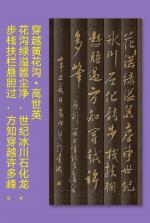 穿越黄花沟·高世英
花沟绿溢嚣尘净，世纪冰川石化龙。
步栈扶栏悬胆过，方知穿越许多峰。
花沟绿溢嚣尘净世纪
冰川石化龙步栈扶栏
悬胆过方知穿越许
多峰